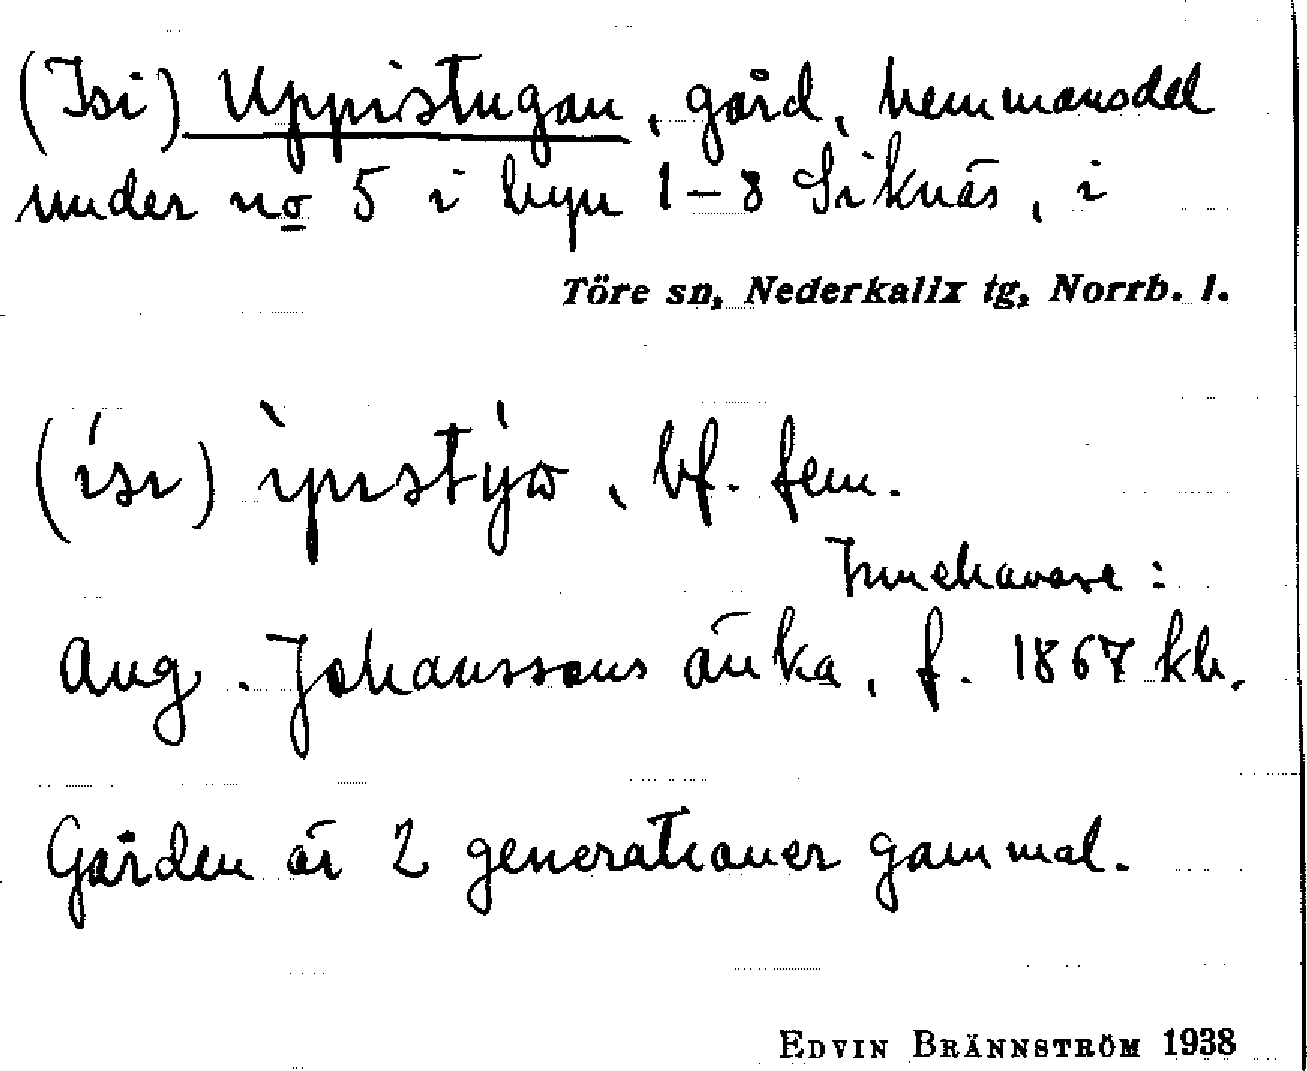 (Isi) Uppistugan, gård, hemmansdel
under no 5 i byn 1–8 Siknäs, i
Töre sn, Nederkalix tg, Norrb. l.
bf. fem.
Innehavare:
Aug. Johanssons änka, f. 1867 kh.
Gården är 2 generationer gammal.
EDVIN BRÄNNSTRÖM 1938